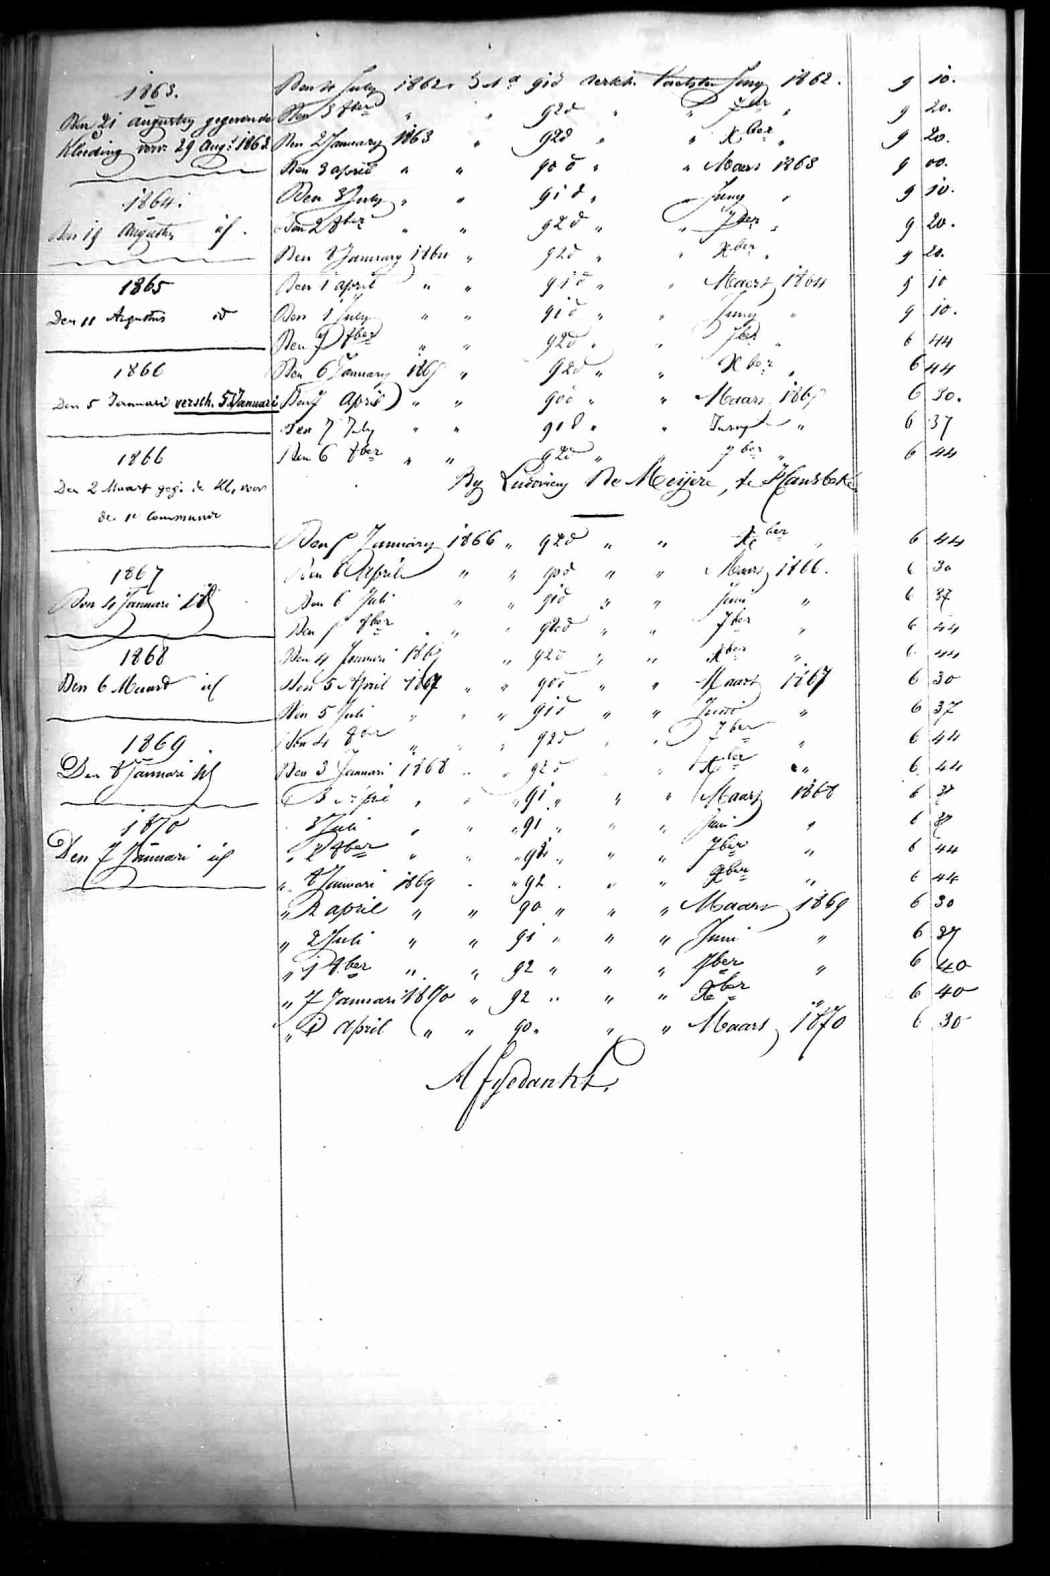 1863.
Den 21 augustij gegeven de
kleeding voor 29 Aug: 1863
1864.
Den 19 Augustus id.
1865
Den 11 Augustus id
1866
Den 5 Januari versch. 5 Januari
1866
Den 2 Maart geg. de kl. voor
de 1e Communie
1867
Den 4 Januari id
1868
Den 6 Maart id
1869.
Den 8 Januari id
1870
Den 7 Januari id
Den 4 July 1862 91d verlet Juny 1862. 9 10.
Den 3 8ber " " 92d " " 7ber " 9 20.
Den 2 January 1863 " 92d " " Xber " 9 20.
Den 3 april " " 90d " " Maart 1863 9 00.
Den 3 July " " 91d " Juny " 9 10.
Den 2 8ber " " 92d " " 7ber " 9 20.
Den 8 January 1864 " 92d " Xber " 9 20.
Den 1 april " " 91d " " Maart 1864 9 10
Den 1 July " " 91d " " Juny " 9 10.
Den 8ber " " 92d " " 7ber " 6 44
Den 6 January " 92d " " Xber " 6 44
Den april " " 90d " " Maart 6 30.
Den 7 July " " 91d " Juny " 6 37
Den 6 8ber " " 92d " " 7ber " 6 44
By Ludovicus De Meijere, te Hansbeke
Den January 1866 " 92d " " Xber " 6 44
Den 6 April " " 90d " " Maart 1866. 6 30
Den 6 Juli " " 91d " " Juni " 6 37
Den 8ber " " 92d " " 7ber " 6 44
Den 4 Januari 1867 " 92d " " Xber " 6 44
Den 5 April 1867 " " 90d " " Maart 1867 6 30
Den 5 Juli " " " 91d " " Juni " 6 37
Den 4 8ber " " " 92d " " 7ber " 6 44
Den 3 Januari 1868 " " 92d " Xber " 6 44
" 91 " " " Maart 1868 6 37
3 Juli " " " 91 " " " Juni " 6 37
" 2 8ber " " " 92 " " " 7ber " 6 44
" 8 Januari 1869 " " 92 " " " Xber " 6 44
" 2 april " " 90 " " " Maart 1869 6 30
" 2 Juli " " 91 " " " Juni " 6 37
" 1 8ber " " 92 " " " 7ber " 6 40
" 7 Januari 1870 " 92 " " " Xber 6 40
" 1 april " " 90 " " " Maart 1870 6 30
Afgedankt.